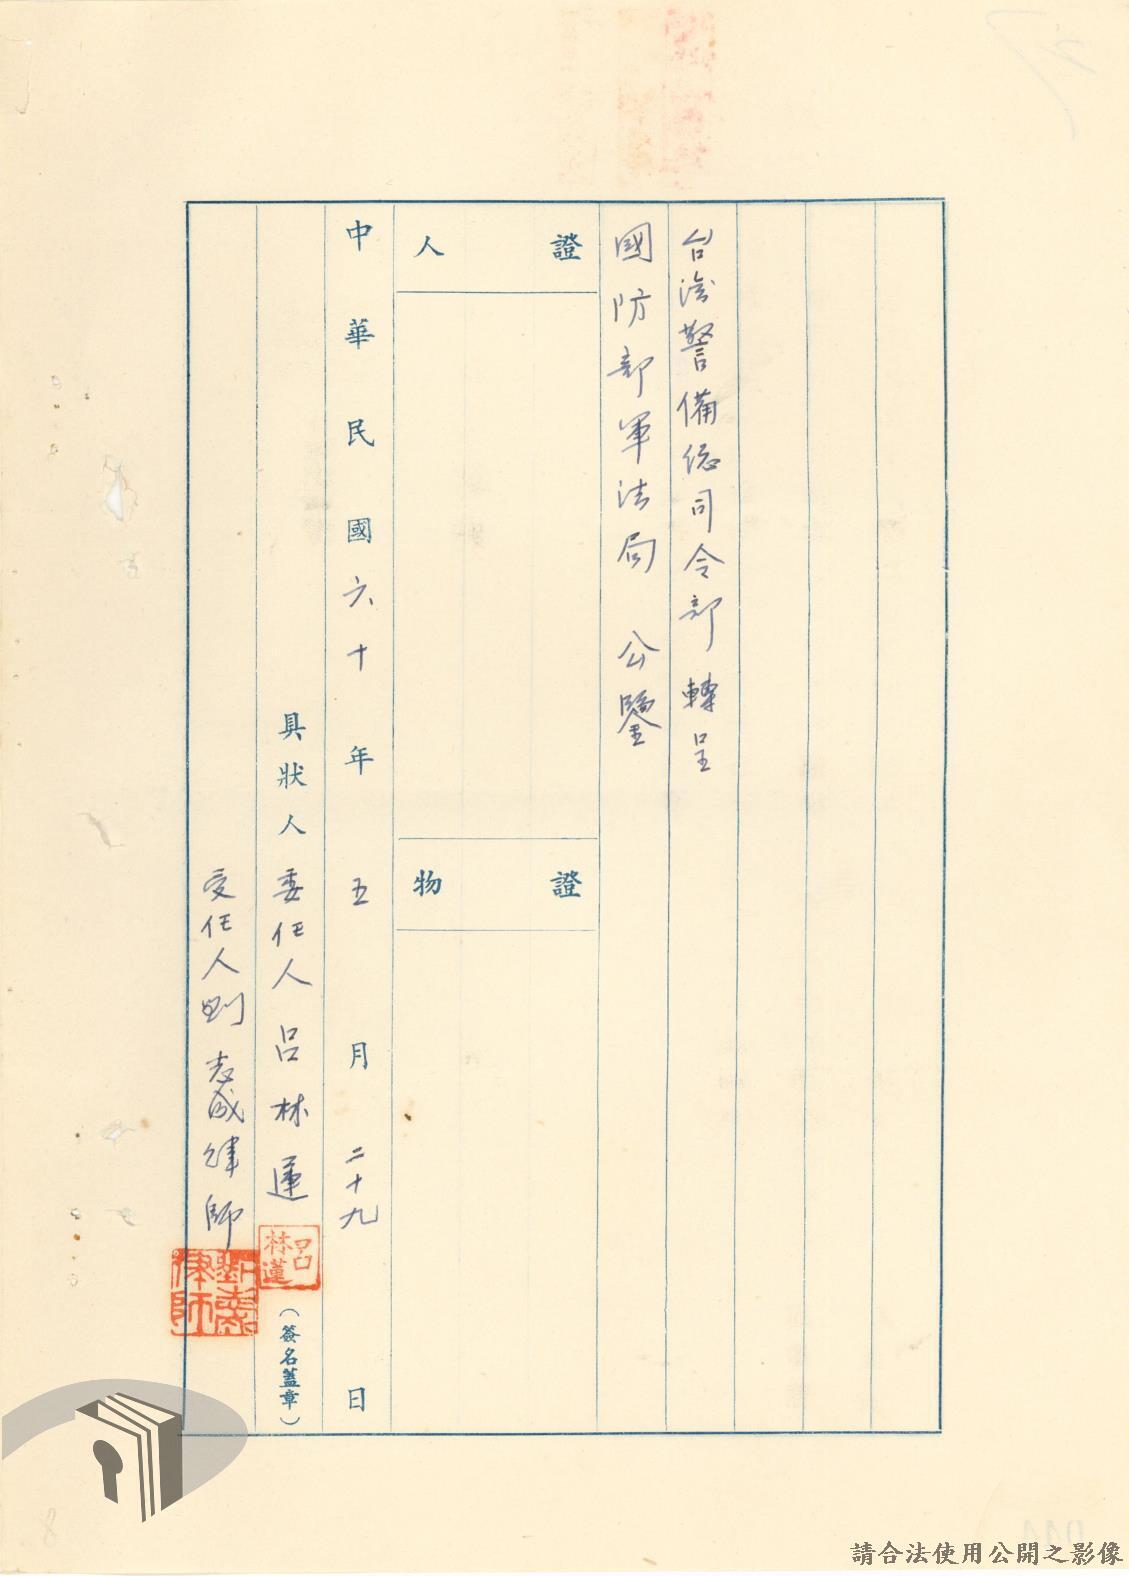 台湾警備總司令部轉呈
國防部軍法局 公鑒
證人
證物
中華民國六十年五月二十九日
具狀人 委任人 呂林蓮 (簽名蓋章)
呂林蓮
受任人 劉志成律師
請合法使用公開之影像